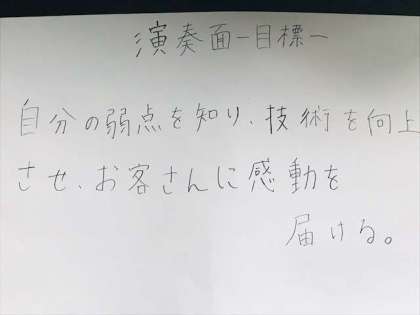 演奏面-目標-
自分の弱点を知り、技術を向上
させ、お客さんに感動を
届ける。